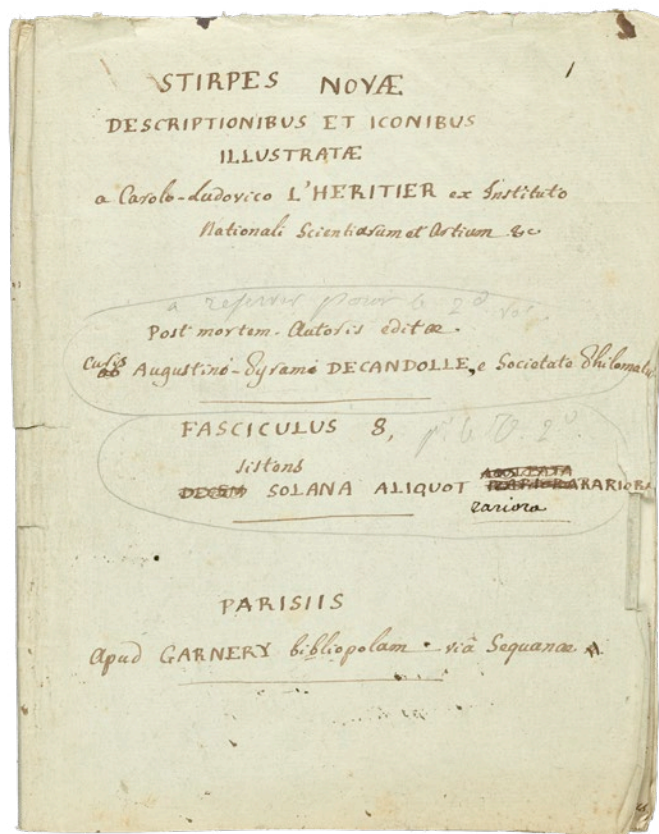 1
STIRPES NOVÆ
DESCRIPTIONIBUS ET ICONIBUS
ILLUSTRATÆ
a Carolo-Ludovico L'HERITIER ex Instituto
Nationali Scientiarum et Artium &c
a reserver pour le 2d vol.
Post mortem Autoris editæ
curis
ab Augustino-Pyramo DECANDOLLE, e Societate Philomatic
FASCICULUS 8, pr. le V. 2d
sistens
DECEM SOLANA ALIQUOT RARIORA
rariora
PARISIIS
Apud GARNERY bibliopolam viâ Sequanæ